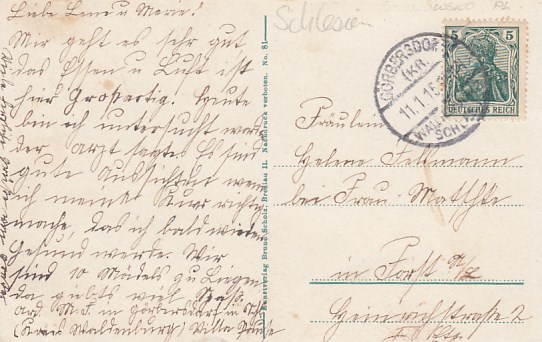 Liebe Lene u Marie!
Mir geht es sehr gut
das Essen u Luft ist
hier Grossartig. Heute
bin ich untersucht worden
der arzt sagte Es sind
gute Aussichten wenn
ich meine Kur richtig
mache, das ich bald wieder
Gesund werde. Wir
sind 10 Mädels zu Liegen
da giebts viel Spaß.
ard. M. F. in Görbersdorf in Sch
(Kreis Waldenburg) Villa
Kunstverlag Bruno Scholz, Breslau II. Nachdruck verboten. No. 81
Schlesien
GÖRBERSDORF
(KR.
11.1.15
WALD
SCHL
5 5
DEUTSCHES REICH
Fräulein
Helene
bei Frau Matthke
in Forst N/L
Heinrichstraße 2